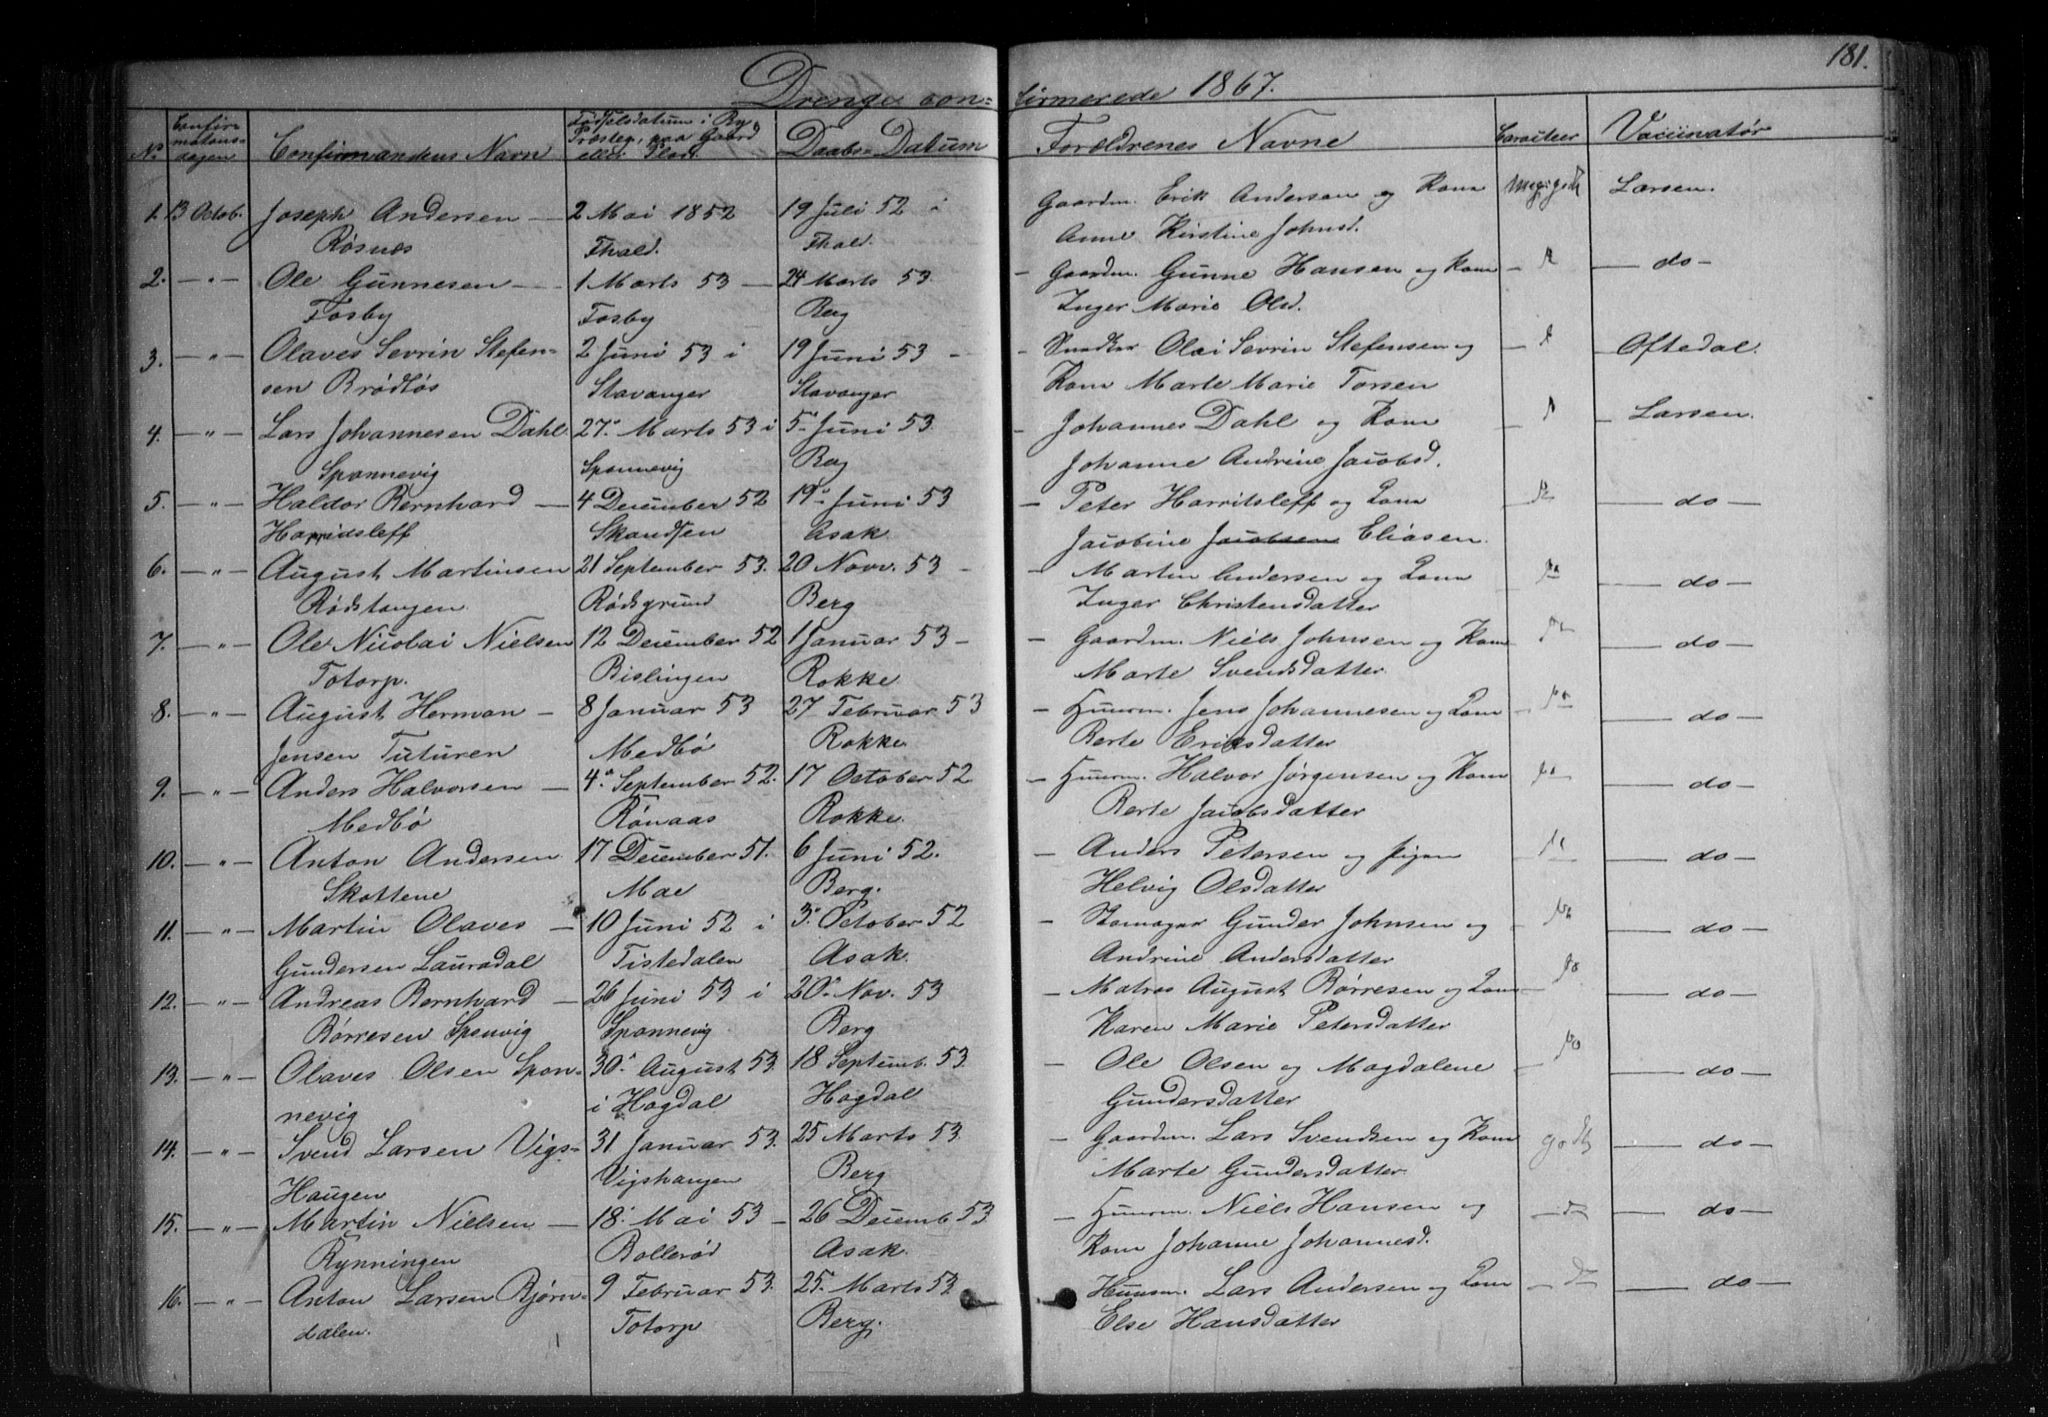 181.
Drenge con= firmerede 1867.
No Confir= mations= dagen Confirmandens Navn Fødselsdatum i By, Præsteg., paa Gaard eller Plads Daabs= Datum Forældrenes Navne Caracteer Vaccinatør
1. 13 Octob. Joseph Andersen — 2 Mai 1852 19 Juli 52 i Gaardm. Erik Anderson og Kone Meg. godt Larsen.
Røsnæs Thold. Thold. Anne Kirstine Johnsd.
2. — " — Ole Gunnesen — 1 Marts 53 — 24 Marts 53. — Gaardm. Gunne Hansen og Kone — do —
Fosby Fosby Berg Inger Marie Olsd.
3. — " — Olaves Sevrin Stefen= 2 Juni 53 i 19 Juni 53 — — Snedker Olai Sevrin Stefensen og — Oftedal.
sen Brødløs Stavanger Stavanger Kone Marte Marie Torsen
4. — " — Lars Johannesen Dahl 27. Marts 53 i 5. Juni 53. — Johannes Dahl og Kone — Larsen.
Sponnevig Sponnevig Berg Johanne Andrine Jacobsd.
5. — " — Haldor Bernhard — 4 December 52 19. Juni 53 — Peter Harritsleff og Kone — do —
Harridsleff Skandsen Asak Jacobine Jacobsen Eliasen.
6. — " — August Martinsen 21 September 53. 20 Novv. 53 — — Martin Andersen og Kone — do —
Rødstangen Rødsgrund Berg Inger Christensdatter
7. — " — Ole Nicolai Nielsen 12 December 52 1 Januar 53 — — Gaardm. Niels Johnsen og Kone — do —
Totorp. Bislingen Rokke Marte Svendsdatter
8. — " — August Herman — 8 Januar 53 27 Februar 53 — Huusm. Jens Johannesen og Kone — do —
Jensen Tuturen Medbø Rokke Berte Eriksdatter
9. — " — Anders Halvorsen — 4. September 52. 17 October 52 — Huusm. Halvor Jørgensen og Kone — do —
Medbø Rønaas Rokke. Berte Jacobsdatter
10. — " — Anton Andersen 17 December 51. 6 Juni 52. — Anders Petersen og Pigen — do —
Skottene Mae Berg. Helvig Olsdatter
11. — " — Martin Olaves — 10 Juni 52 i 3. October 52 — Skomager Gunder Johnsen og — do —
Gundersen Lauradal Tistedalen Asak. Andrine Andersdatter
12. — " — Andreas Bernhard — 26 Juni 53 i 20. Nov. 53 — Matros August Børresen og Kone — do —
Børresen Sponvig Sponnevig Berg Karen Marie Petersdatter
13. — " — Olaves Olsen Spon= 30. August 53. 18 Septemb. 53. — Ole Olsen og Magdalene — do —
nevig i Hogdal Hogdal Gundersdatter
14. — " — Svend Larsen Vigs= 31 Januar 53. 25 Marts 53. — Gaardm. Lars Svendsen og Kone godt — do —
Haugen Vigshaugen Berg Marte Gundersdatter
15. — " — Martin Nielsen — 18. Mai 53 — 26 Decemb. 53 — Huusm. Niels Hansen og — do —
Rynningen Bollerød Asak. Kone Johanne Johannesd.
16. — " — Anton Larsen Bjørn= 9 Februar 53. 25. Marts 53. Huusm. Lars Andersen og Kone — do —
dalen. Totorp Berg. Else Hansdatter